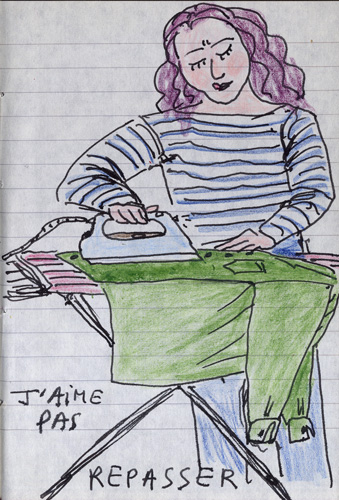 J'AiME
PAS
REPASSER